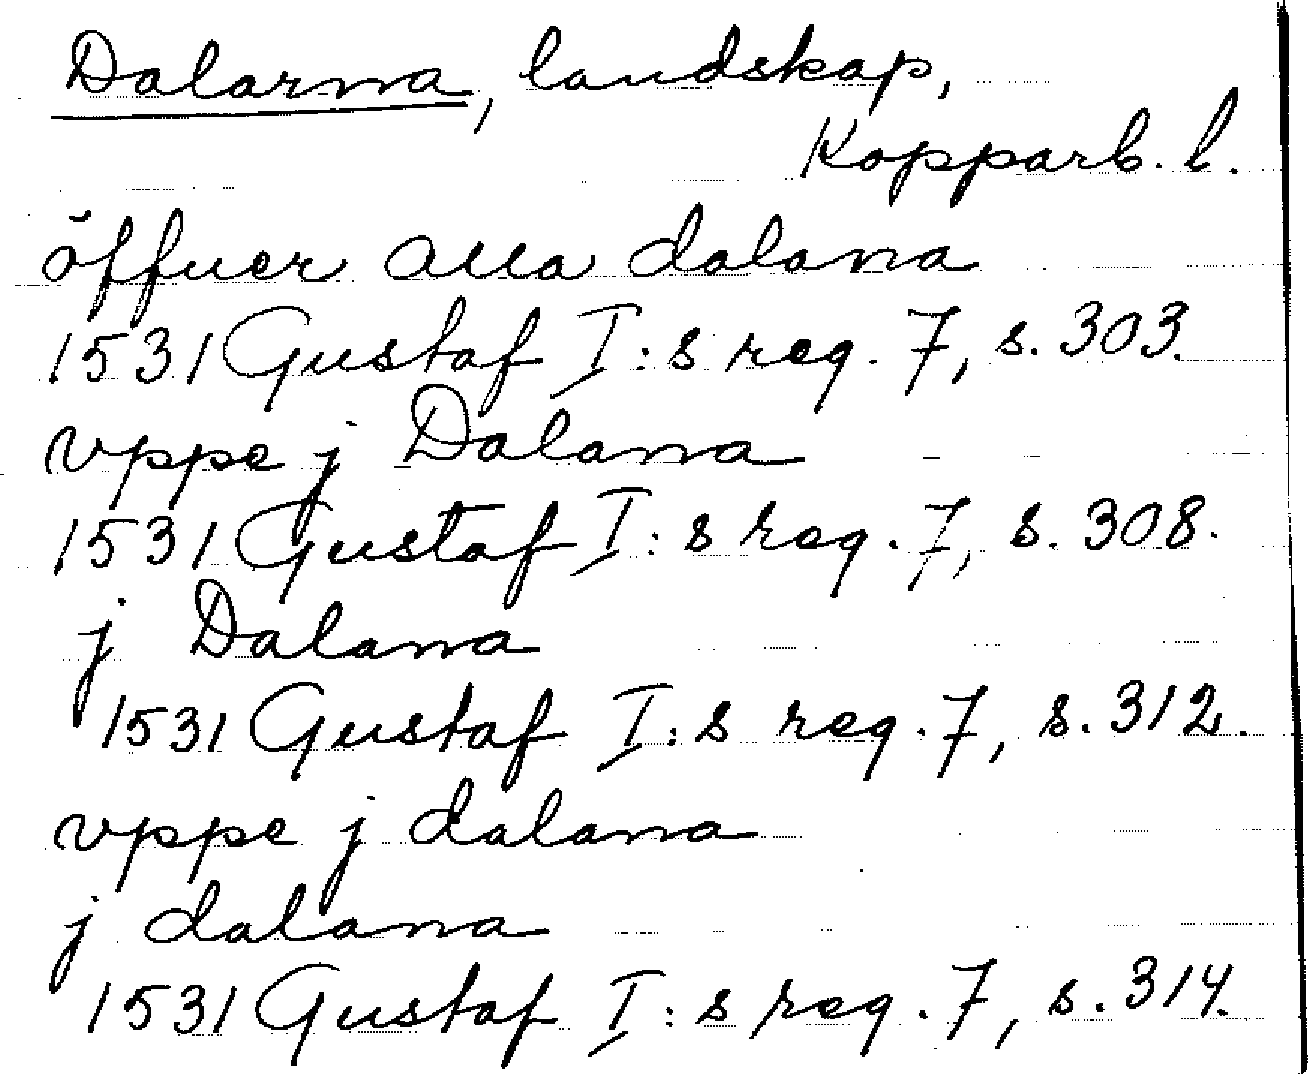 Dalarna, landskap,
Kopparb. l.
öffuer alla dalana
1531 Gustaf I:s reg. 7, s. 303.
vppe j Dalana
1531 Gustaf I:s reg. 7, s. 308.
j Dalana
1531 Gustaf I:s reg. 7, s. 312.
vppe j dalana
j dalana
1531 Gustaf I:s reg. 7, s. 314.